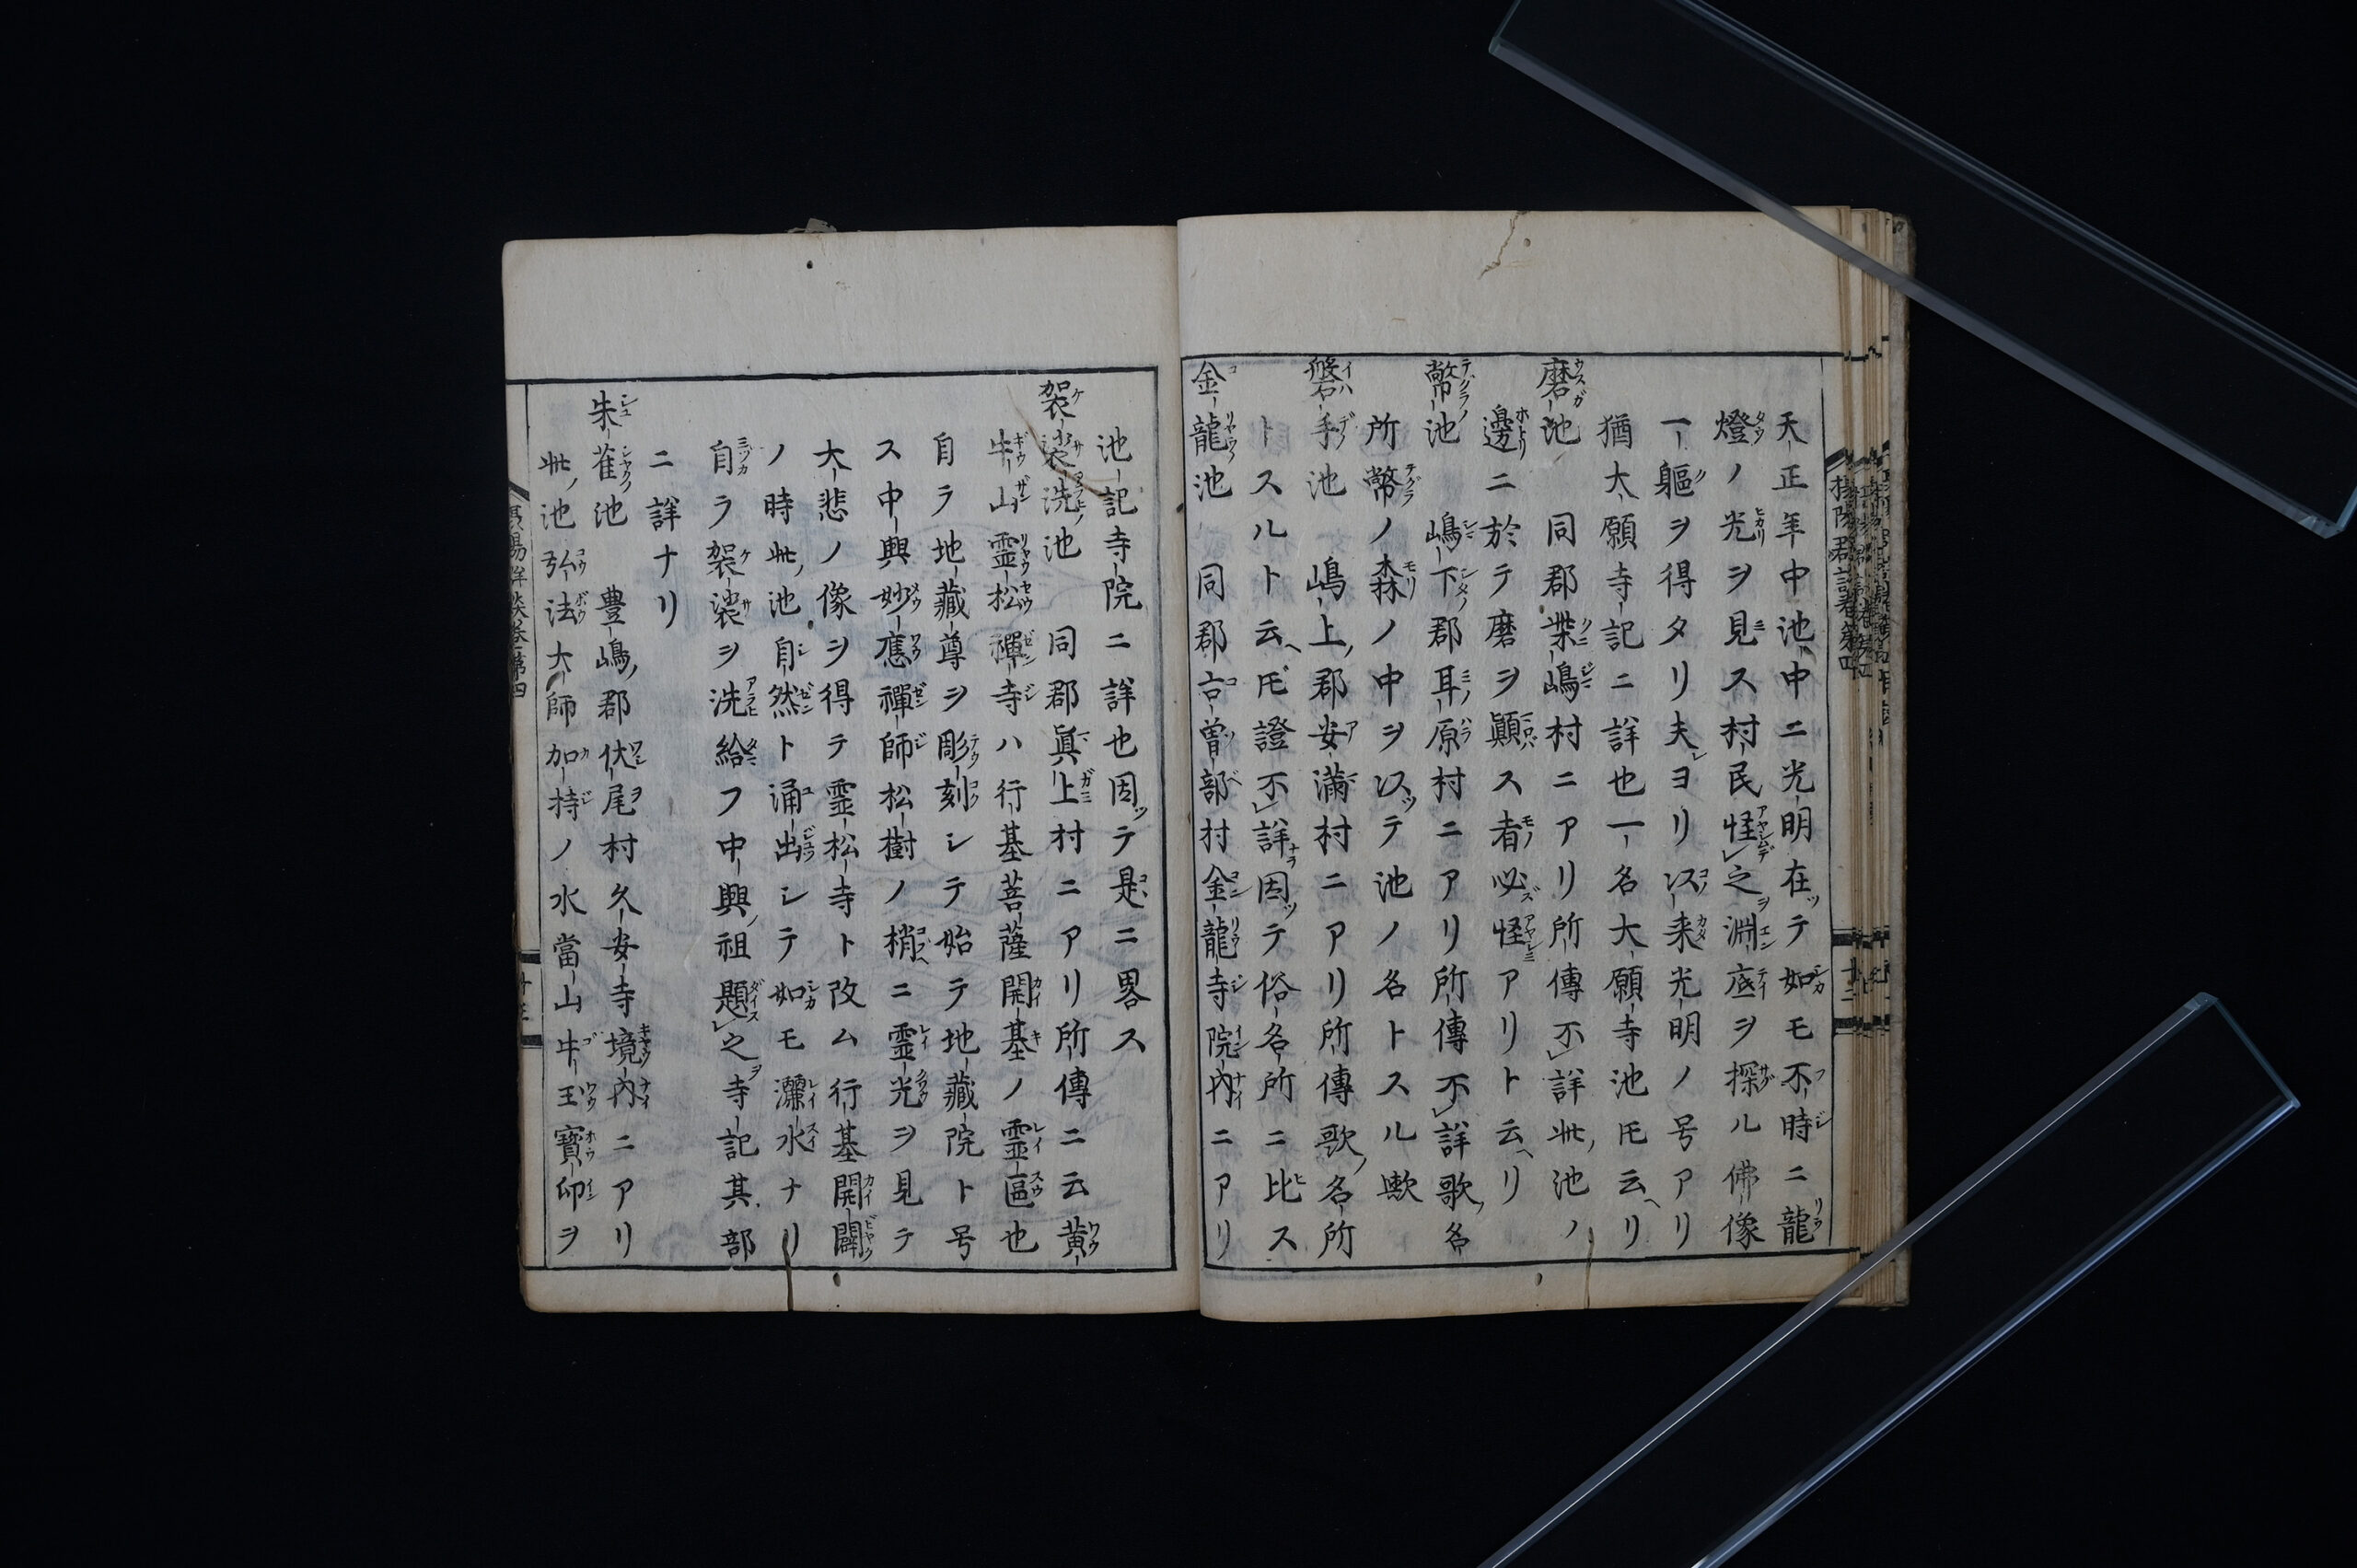 天正年中池中ニ光明在ッテ如モ不時ニ龍
燈ノ光ヲ見ス村民怪之淵底ヲ探ル佛像
一軀ヲ得タリ夫ヨリ以来光明ノ号アリ
猶大願寺記ニ詳也一名大願寺池𪜈云リ
磨池 同郡𣗳嶋村ニアリ所傳不詳此池ノ
邊ニ於テ磨ヲ顚ス者必怪アリト云リ
幣池 嶋下郡耳原村ニアリ所傳不詳歌名
所幣ノ森ノ中ヲ以ッテ池ノ名トスル歟
磐手池 嶋上郡安満村ニアリ所傳歌名所
トスルト云𪜈證不詳因ッテ俗名所ニ比ス
金龍池 同郡古曽部村金龍寺院内ニアリ
池記寺院ニ詳也因ッテ是ニ畧ス
袈裟洗池 同郡眞上村ニアリ所傳ニ云黄
牛山霊松禪寺ハ行基菩薩開基ノ霊區也
自ラ地藏尊ヲ彫刻シテ始テ地藏院ト号
ス中興妙應禪師松樹ノ梢ニ霊光ヲ見テ
大悲ノ像ヲ得テ霊松寺ト改ム行基開闢
ノ時此池自然ト涌出シテ如モ灵水ナリ
自ラ袈裟ヲ洗給フ中興祖題之寺記其部
ニ詳ナリ
朱雀池 豊嶋郡伏尾村久安寺境内ニアリ
此池弘法大師加持ノ水當山牛王寳印ヲ